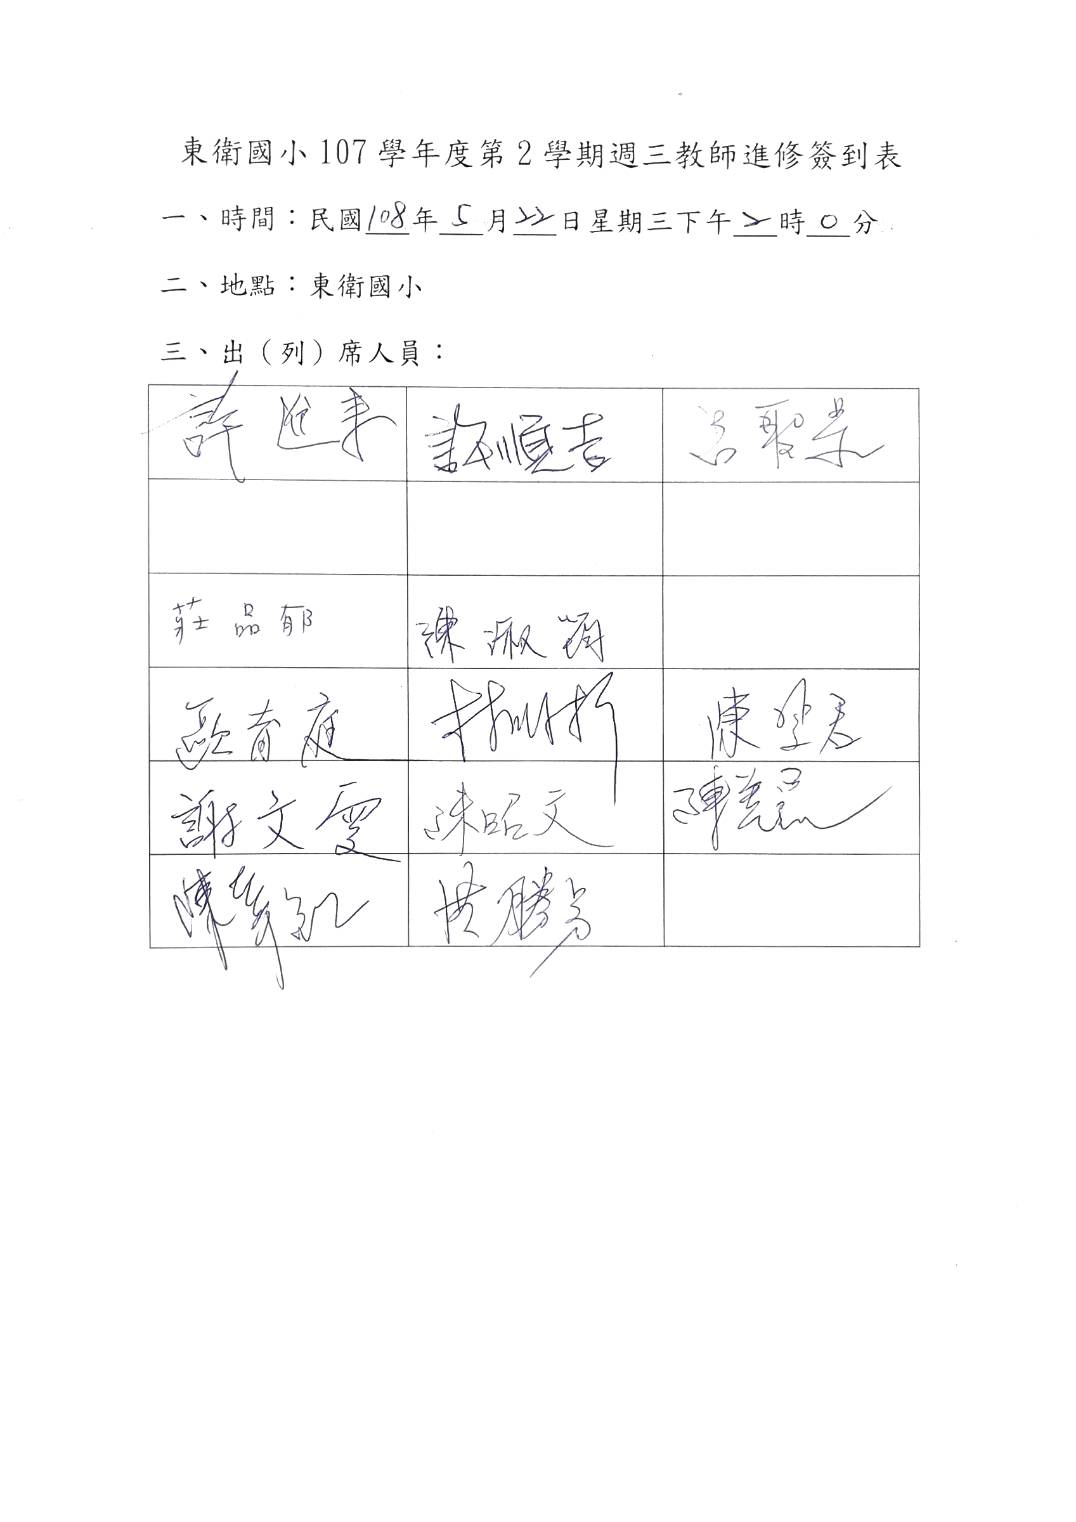 東衛國小 107 學年度第 2 學期週三教師進修簽到表
一、時間：民國108年 5 月22日星期三下午 2 時 0 分
二、地點：東衛國小
三、出（列）席人員：
許進來 許順吉 呂聚崇
莊品郁 陳淑
歐育庭 陳瑩君
謝文雯 陳昭文 陳美
陳 洪勝